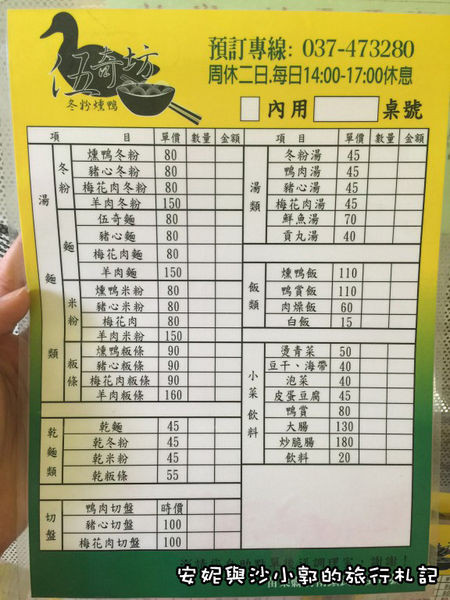 伍奇坊
冬粉燻鴨
預訂專線: 037-473280
周休二日.每日14:00-17:00休息
內用 桌號
項 目 單價 數量 金額
湯麵類
冬粉
燻鴨冬粉 80
豬心冬粉 80
梅花肉冬粉 80
羊肉冬粉 150
麵
伍奇麵 80
豬心麵 80
梅花肉麵 80
羊肉麵 150
米粉
燻鴨米粉 80
豬心米粉 80
梅花肉 80
羊肉米粉 150
粄條
燻鴨粄條 90
豬心粄條 90
梅花肉粄條 90
羊肉粄條 160
乾麵類
乾麵 45
乾冬粉 45
乾米粉 45
乾粄條 55
切盤
鴨肉切盤 時價
豬心切盤 100
梅花肉切盤 100
項 目 單價 數量 金額
湯類
冬粉湯 45
鴨肉湯 45
豬心湯 45
梅花肉湯 45
鮮魚湯 70
貢丸湯 40
飯類
燻鴨飯 110
鴨賞飯 110
肉燥飯 60
白飯 15
小菜飲料
燙青菜 50
豆干、海帶 40
泡菜 40
皮蛋豆腐 45
鴨賞 80
大腸 130
炒脆腸 180
飲料 20
安妮與沙小郭的旅行札記